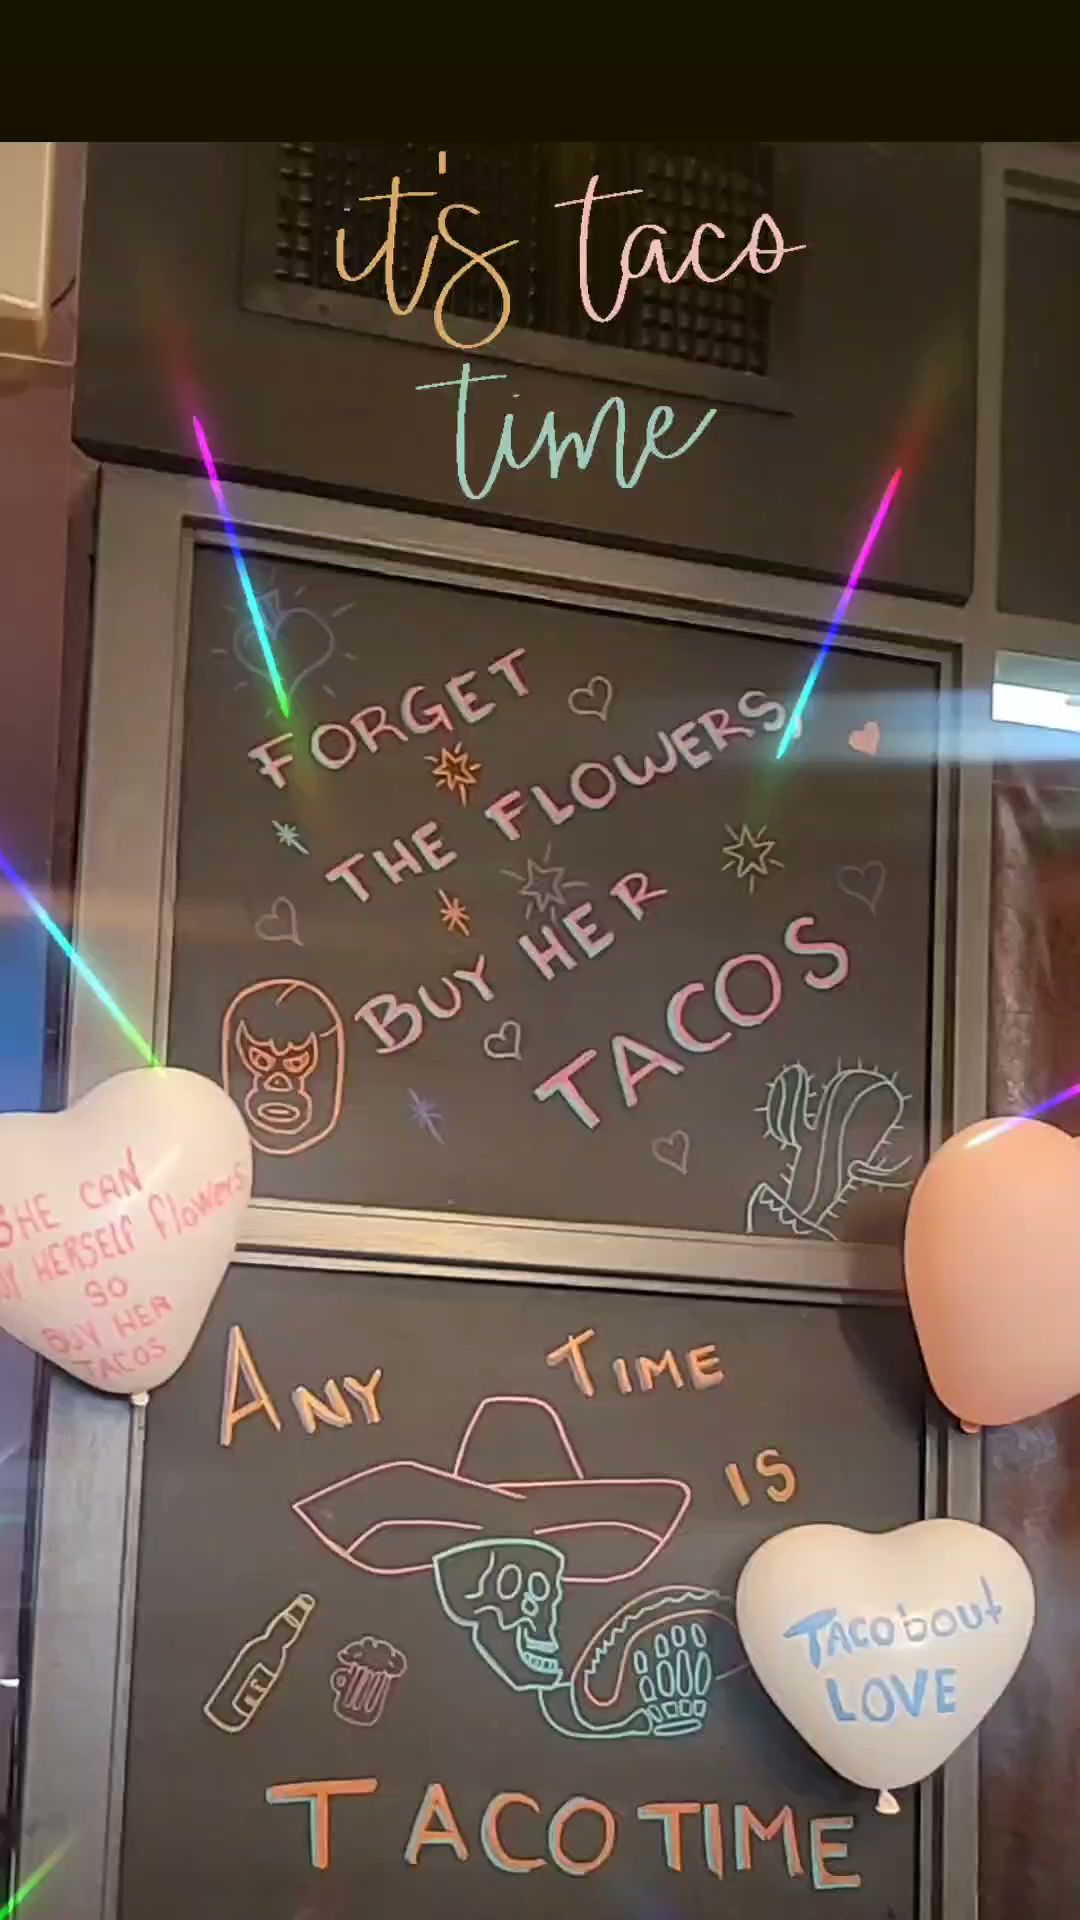 it's taco
time
FORGET
THE FLOWERS,
BUY HER
TACOS
SHE CAN
HERSELF flowers
SO
BUY HER
TACOS
ANY TIME
IS
TACO'bout
LOVE
TACO TIME